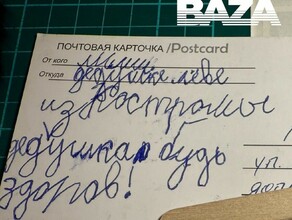 BAZA
ПОЧТОВАЯ КАРТОЧКА /Postcard
От кого Миши
Откуда дедушке Лёве
из Костромы
дедушка будь
здоров!